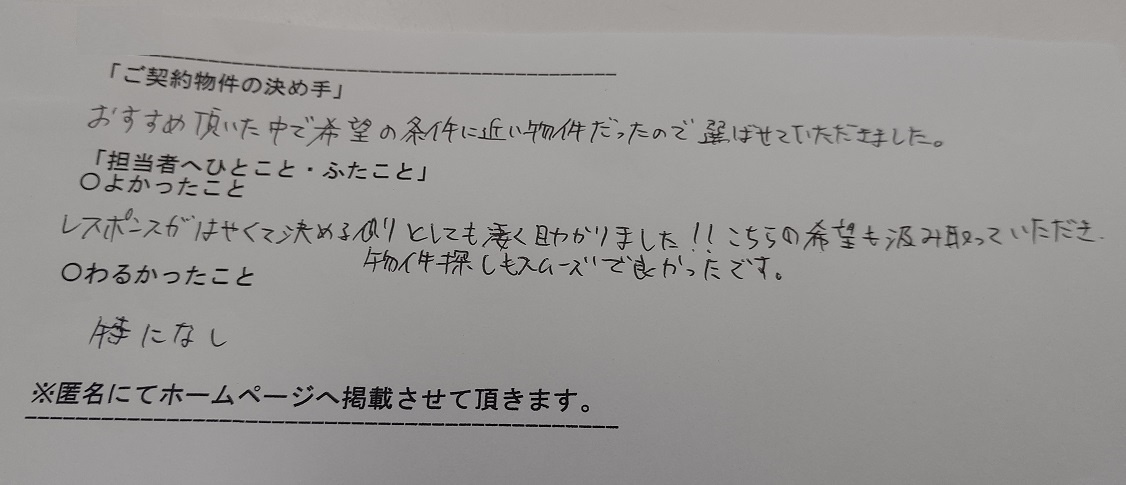 「ご契約物件の決め手」
おすすめ頂いた中で希望の条件に近い物件だったので選ばせていただきました。
「担当者へひとこと・ふたこと」
○よかったこと
レスポンスがはやくて決める側としても凄く助かりました!!こちらの希望も汲み取っていただき、
物件探しもスムーズで良かったです。
○わるかったこと
特になし
※匿名にてホームページへ掲載させて頂きます。